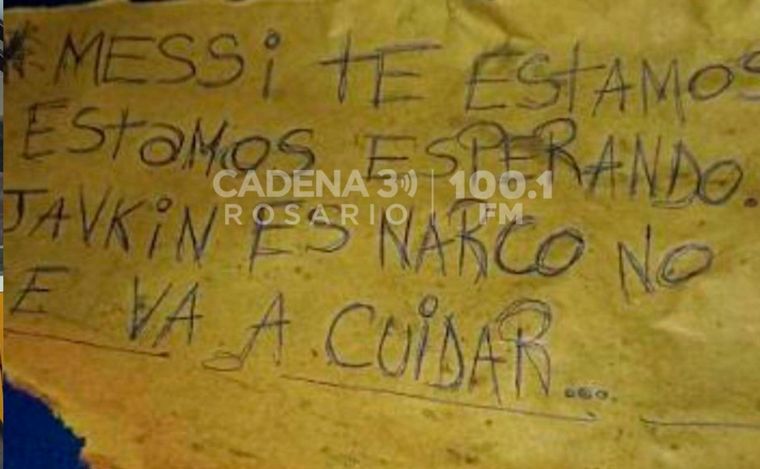 MESSi TE ESTAMOS
ESTaMOS ESPERANDO.
CADENA 3 | 100.1
ROSARIO FM
JAVKiN ES NARCO NO
E VA A CUiDAR....